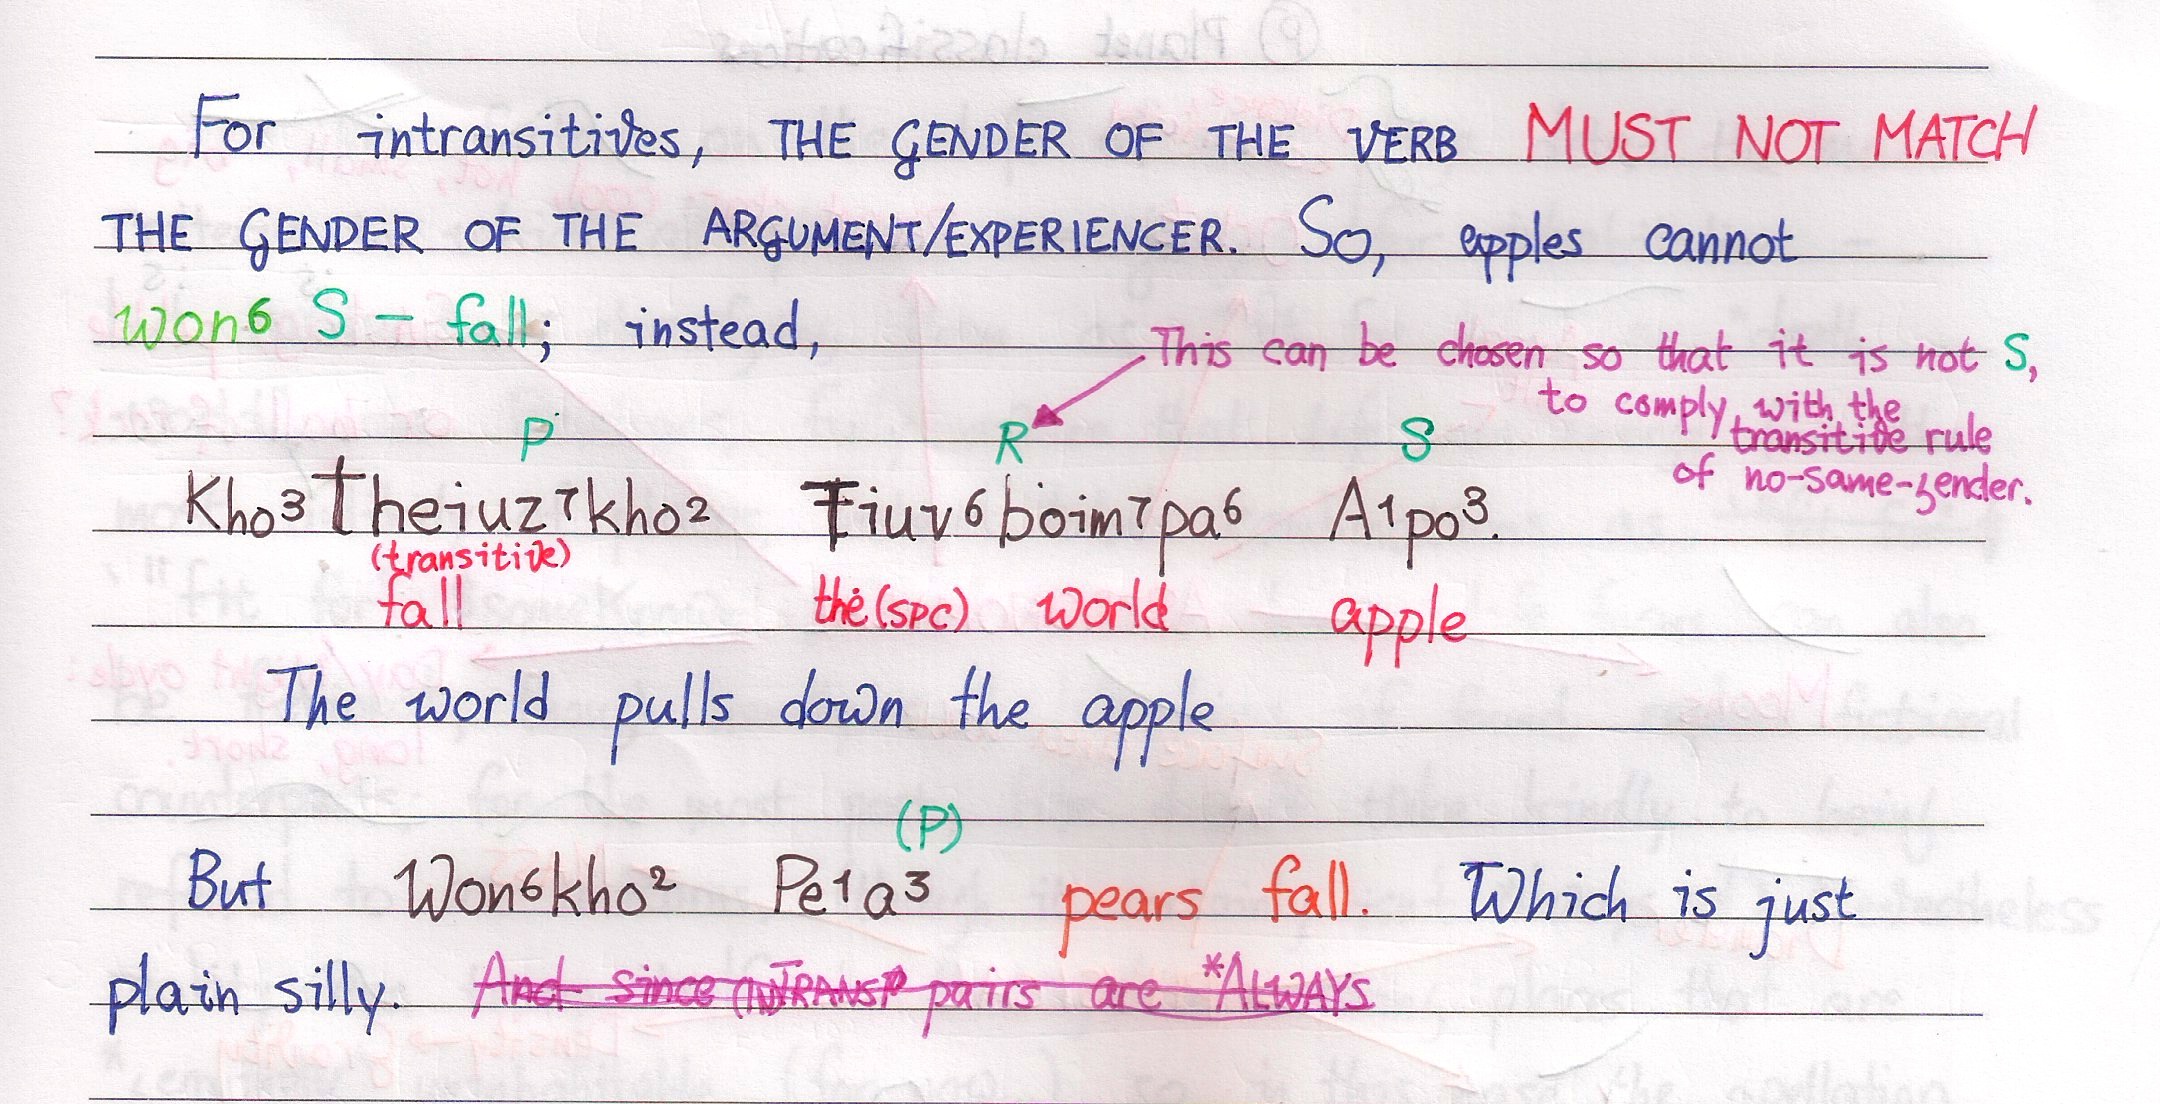 For intransitives, THE GENDER OF THE VERB MUST NOT MATCH
THE GENDER OF THE ARGUMENT/EXPERIENCER. So, apples cannot
won6 S - fall; instead,
This can be chosen so that it is not S,
to comply with the
transitive rule
of no-same-gender.
P R S
Kho3theiuz7kho2 Tiuv6boim7pa6 A1po3.
(transitive)
fall the (spc) world apple
The world pulls down the apple
(P)
But Won6kho2 Pe1a3 pears fall. Which is just
plain silly. And since (IN)TRANS pairs are *ALWAYS